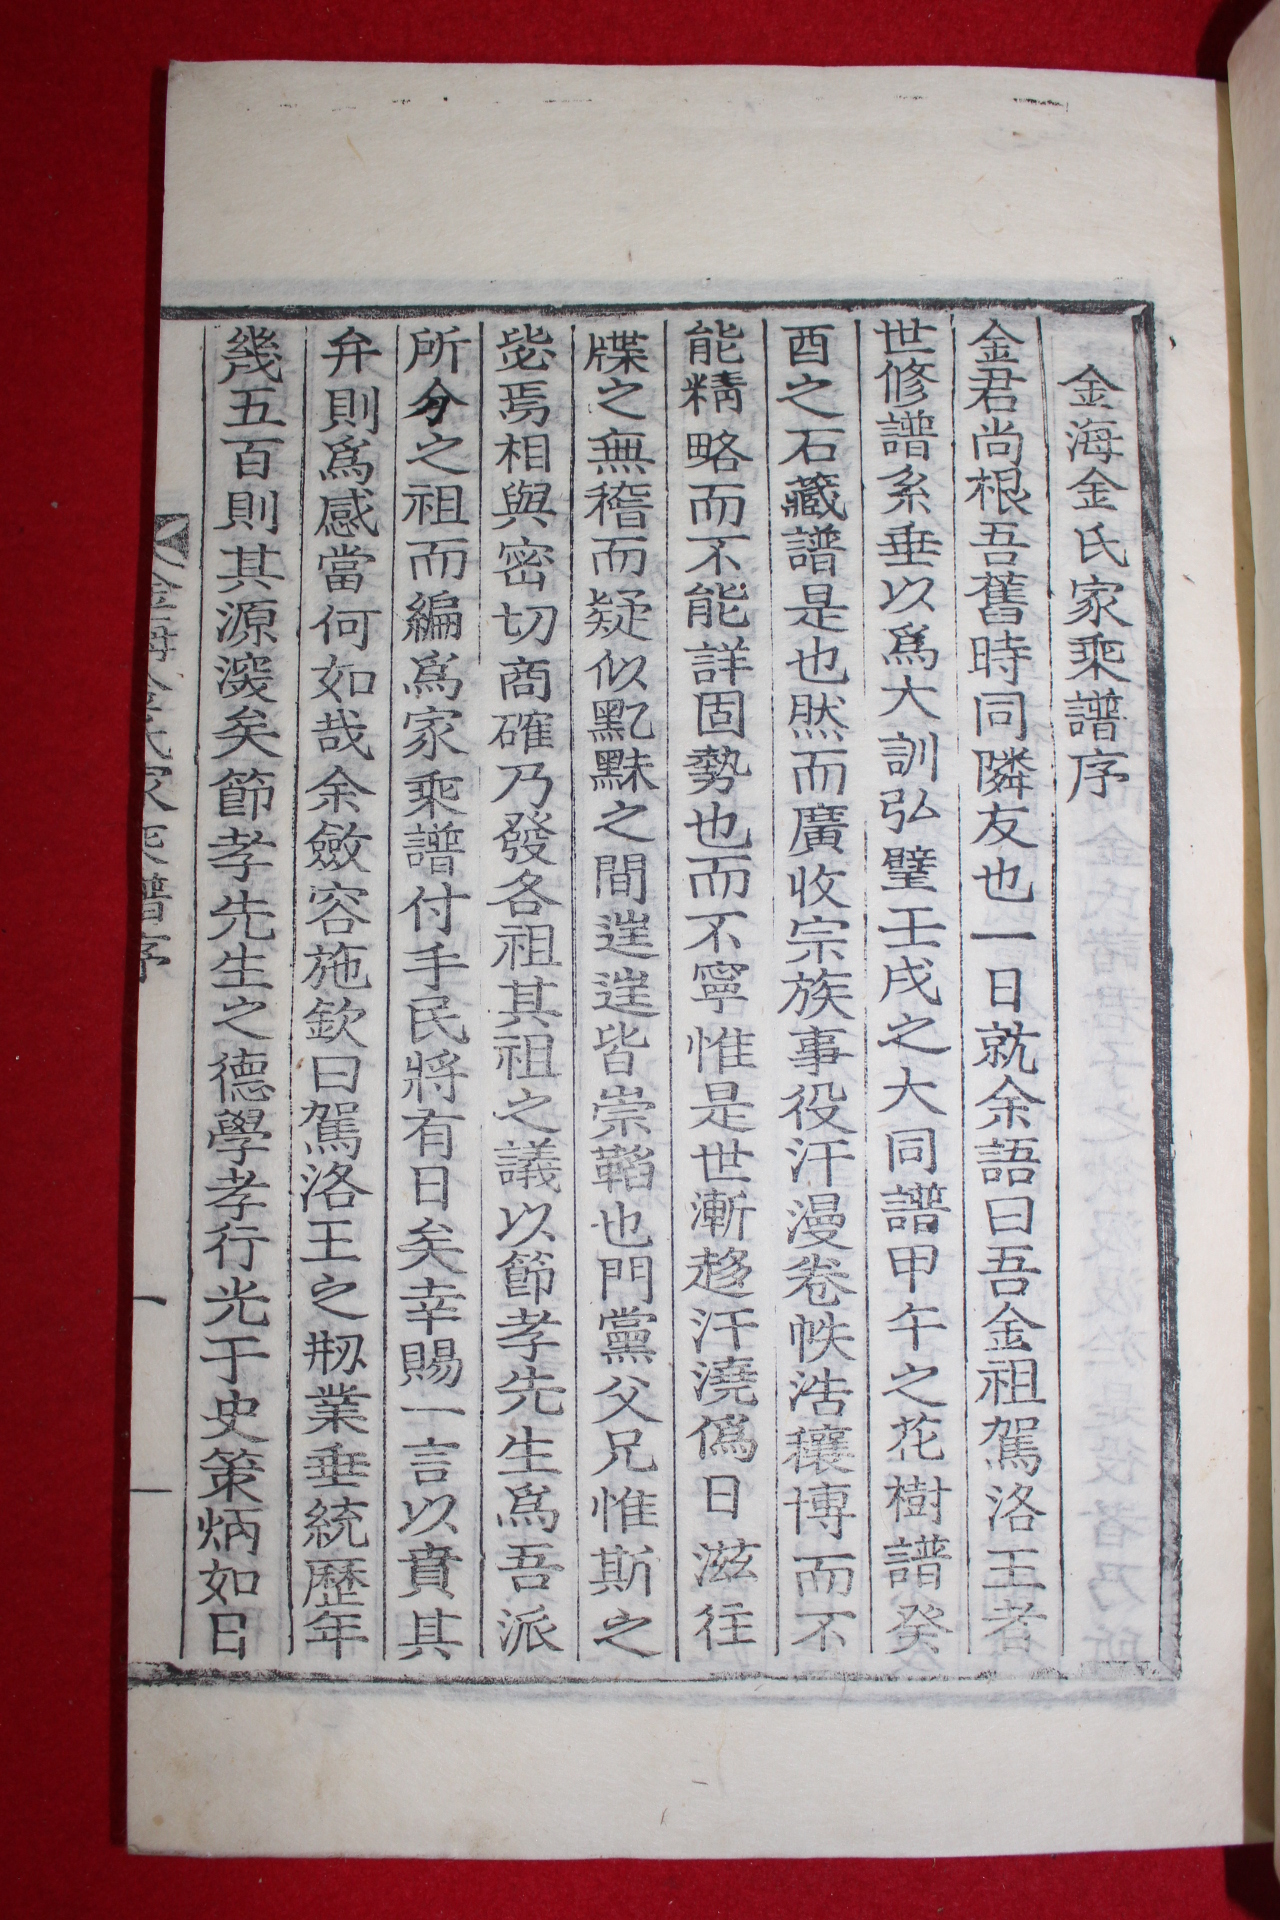 金海金氏家乘譜序
金君尚根吾舊時同隣友也一日就余語曰吾金祖駕洛王者
世修譜系垂以爲大訓弘璧壬戌之大同譜甲午之花樹譜癸
酉之石藏譜是也然而廣收宗族事役汗漫卷帙浩穰博而不
能精略而不能詳固勢也而不寧惟是世漸趍汙澆僞日滋往
牒之無稽而疑似黓黣之間遑遑皆崇韜也門黨父兄惟斯之
毖焉相與密切商確乃發各祖其祖之議以節孝先生爲吾派
所分之祖而編爲家乘譜付手民將有日矣幸賜一言以賁其
弁則爲感當何如哉余斂容施欽曰駕洛王之刱業垂統歷年
幾五百則其源深矣節孝先生之德學孝行光于史策炳如日
金海金氏家乘譜序 一